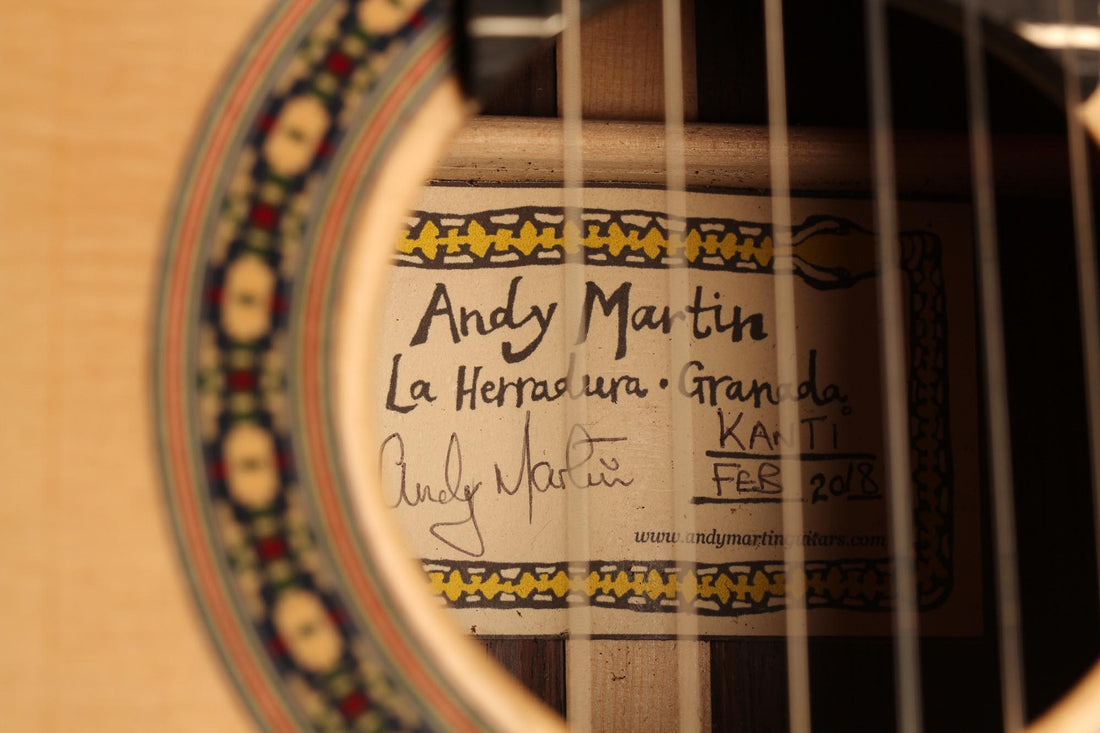 Andy Martin
La Herradura • Granada
Andy Martin
KANTI
FEB 2018
www.andymartinguitars.com